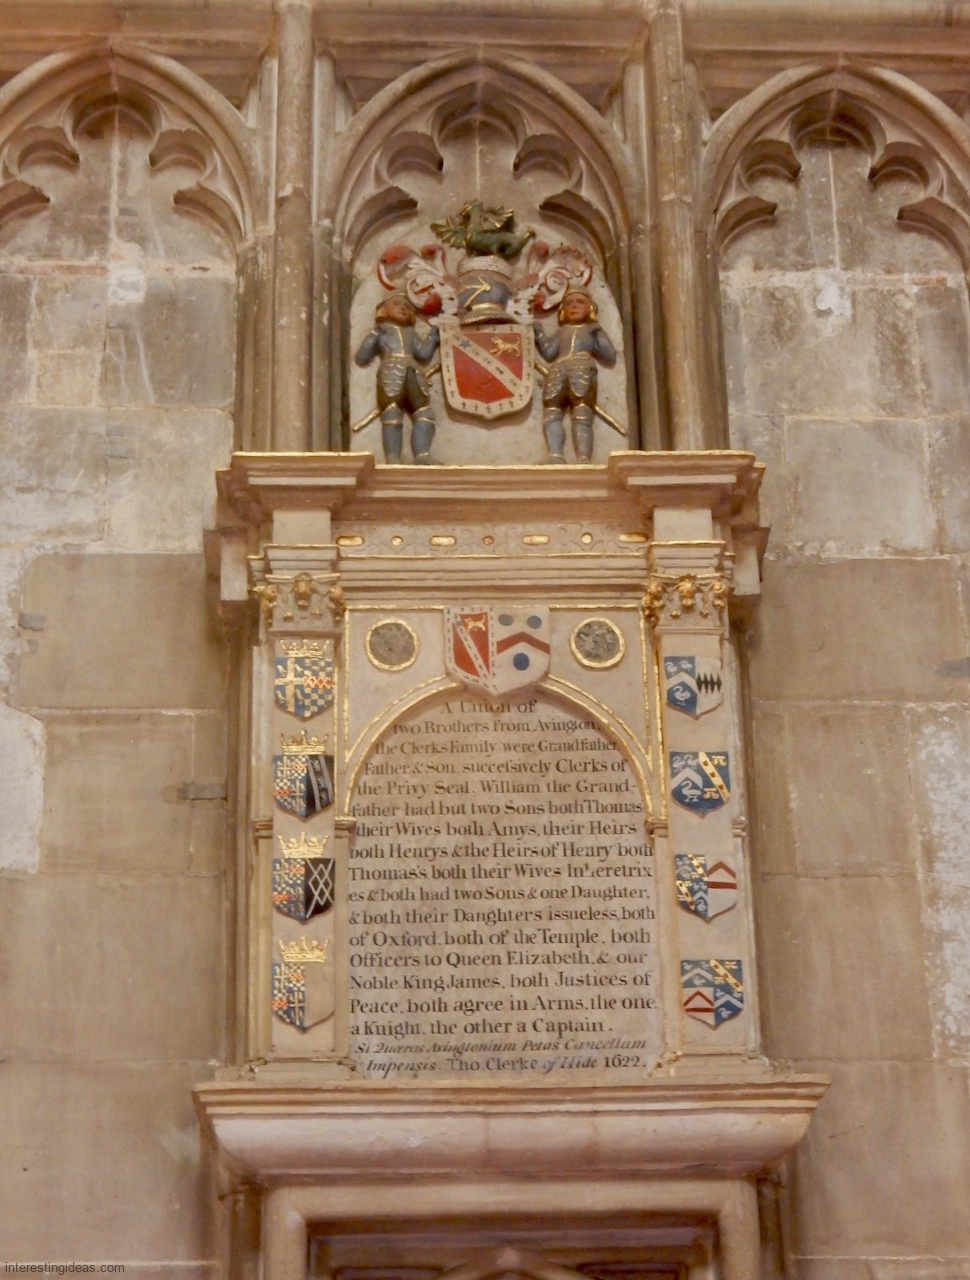 A Union of
two Brothers from Avington,
the Clerks Family were Grandfather,
Father & Son, successively Clerks of
the Privy Seal, William the Grand-
father had but two Sons both Thomas
their Wives both Amys, their Heirs
both Henrys & the Heirs of Henry both
Thomas's, both their Wives Inheretrix
es & both had two Sons & one Daughter,
& both their Daughters issueless, both
of Oxford, both of the Temple, both
Officers to Queen Elizabeth, & our
Noble King James, both Justices of
Peace, both agree in Arms, the one
a Knight, the other a Captain.
Si Quæras Avingtonium Petas Cancellum
Impensis. Tho. Clerke of Hide 1622.
interestingideas.com